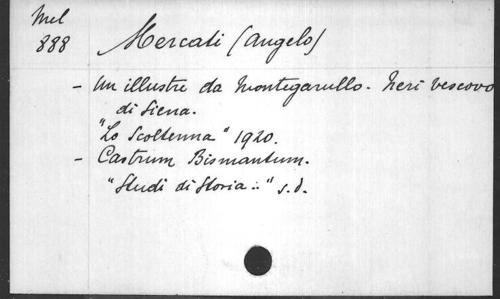 Mel
888
Mercati (Angelo)
- Un illustre da Montegarullo. Neri vescovo
di Siena.
"Lo Scoltenna" 1920.
- Castrum Bismantum.
"Studi di Storia .." s.d.